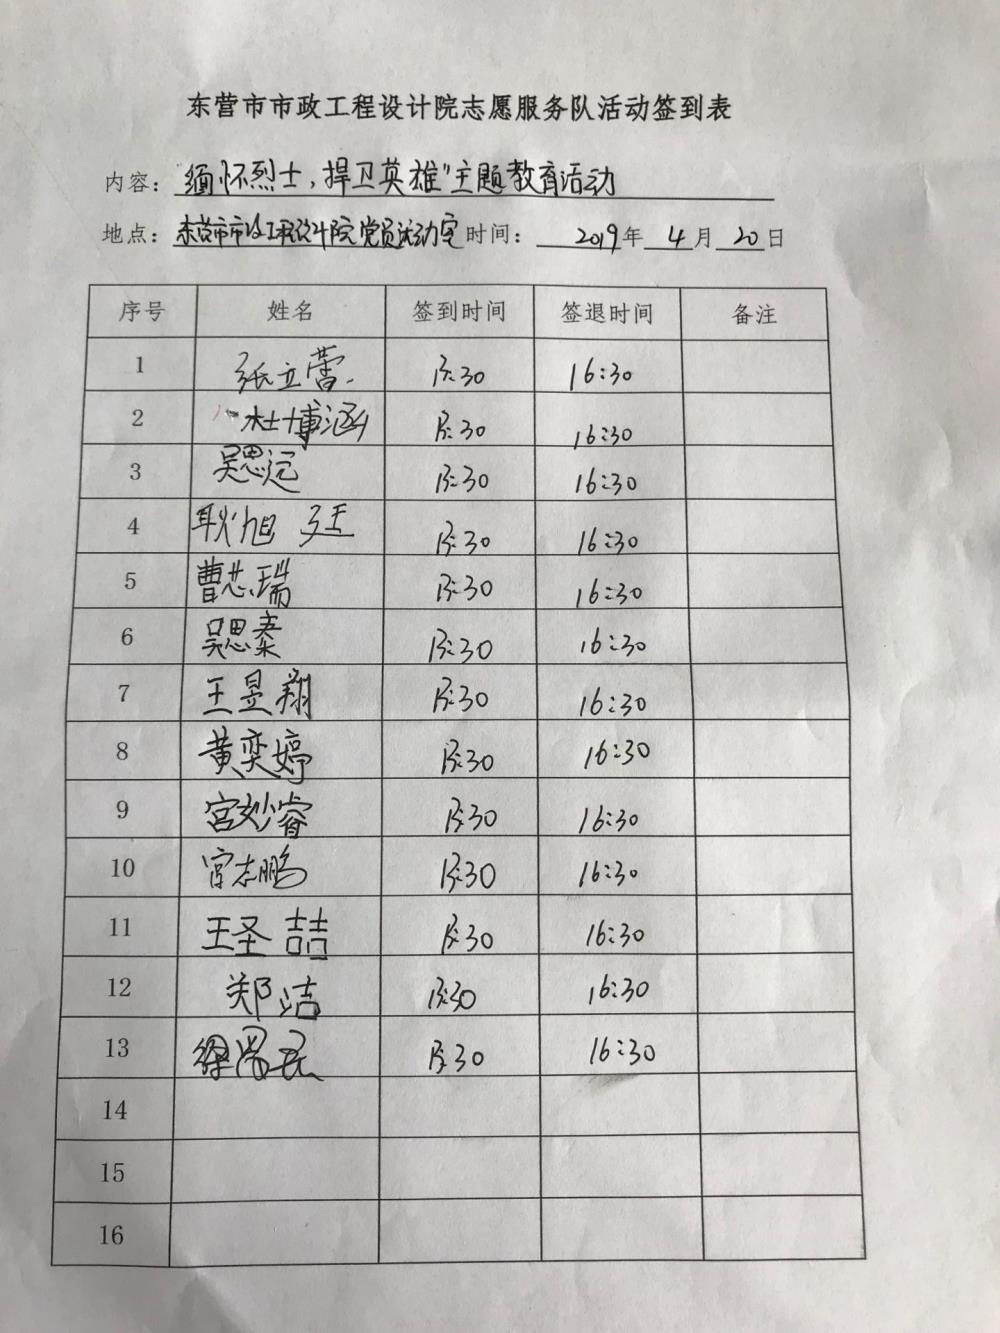 东营市市政工程设计院志愿服务队活动签到表
内容：“缅怀烈士，捍卫英雄”主题教育活动
地点：东营市市政工程设计院党员活动室 时间：2019年 4月 20日
序号 姓名 签到时间 签退时间 备注
1 张立蕾 15:30 16:30
2 杜博涵 15:30 16:30
3 吴思远 15:30 16:30
4 耿旭廷 15:30 16:30
5 曹芯瑞 15:30 16:30
6 吴思秦 15:30 16:30
7 王昱翔 15:30 16:30
8 黄奕婷 15:30 16:30
9 宫妙睿 15:30 16:30
10 宫志鹏 15:30 16:30
11 王圣喆 15:30 16:30
12 郑洁 15:30 16:30
13 15:30 16:30
14
15
16